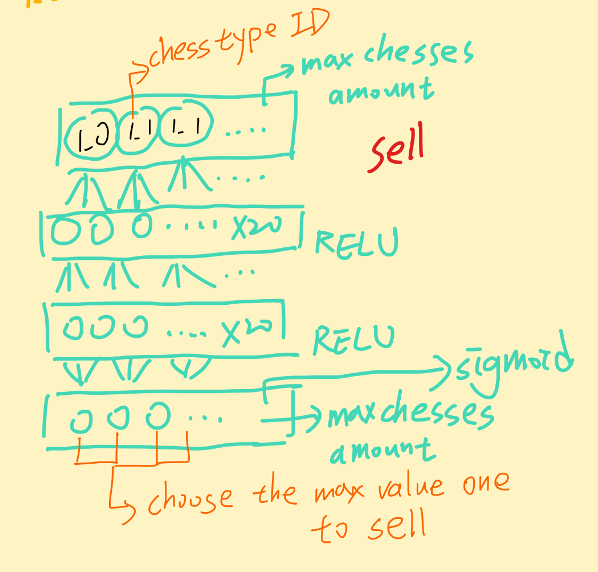 chess type ID
max chesses
amount
1_0 1_1 1_1 ....
sell
....
0 0 0 ..... x20
RELU
...
0 0 0 .... x20
RELU
sigmoid
0 0 0 ...
max chesses
amount
choose the max value one
to sell